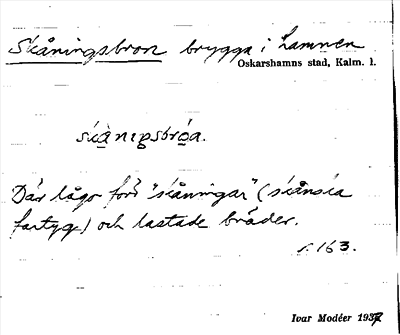 Skåningsbron brygga i hamnen
Oskarshamns stad, Kalm. l.
Där lågo förr "skåningar" (skånska
fartyg) och lastade bräder.
s. 163.
Ivar Modéer 1937